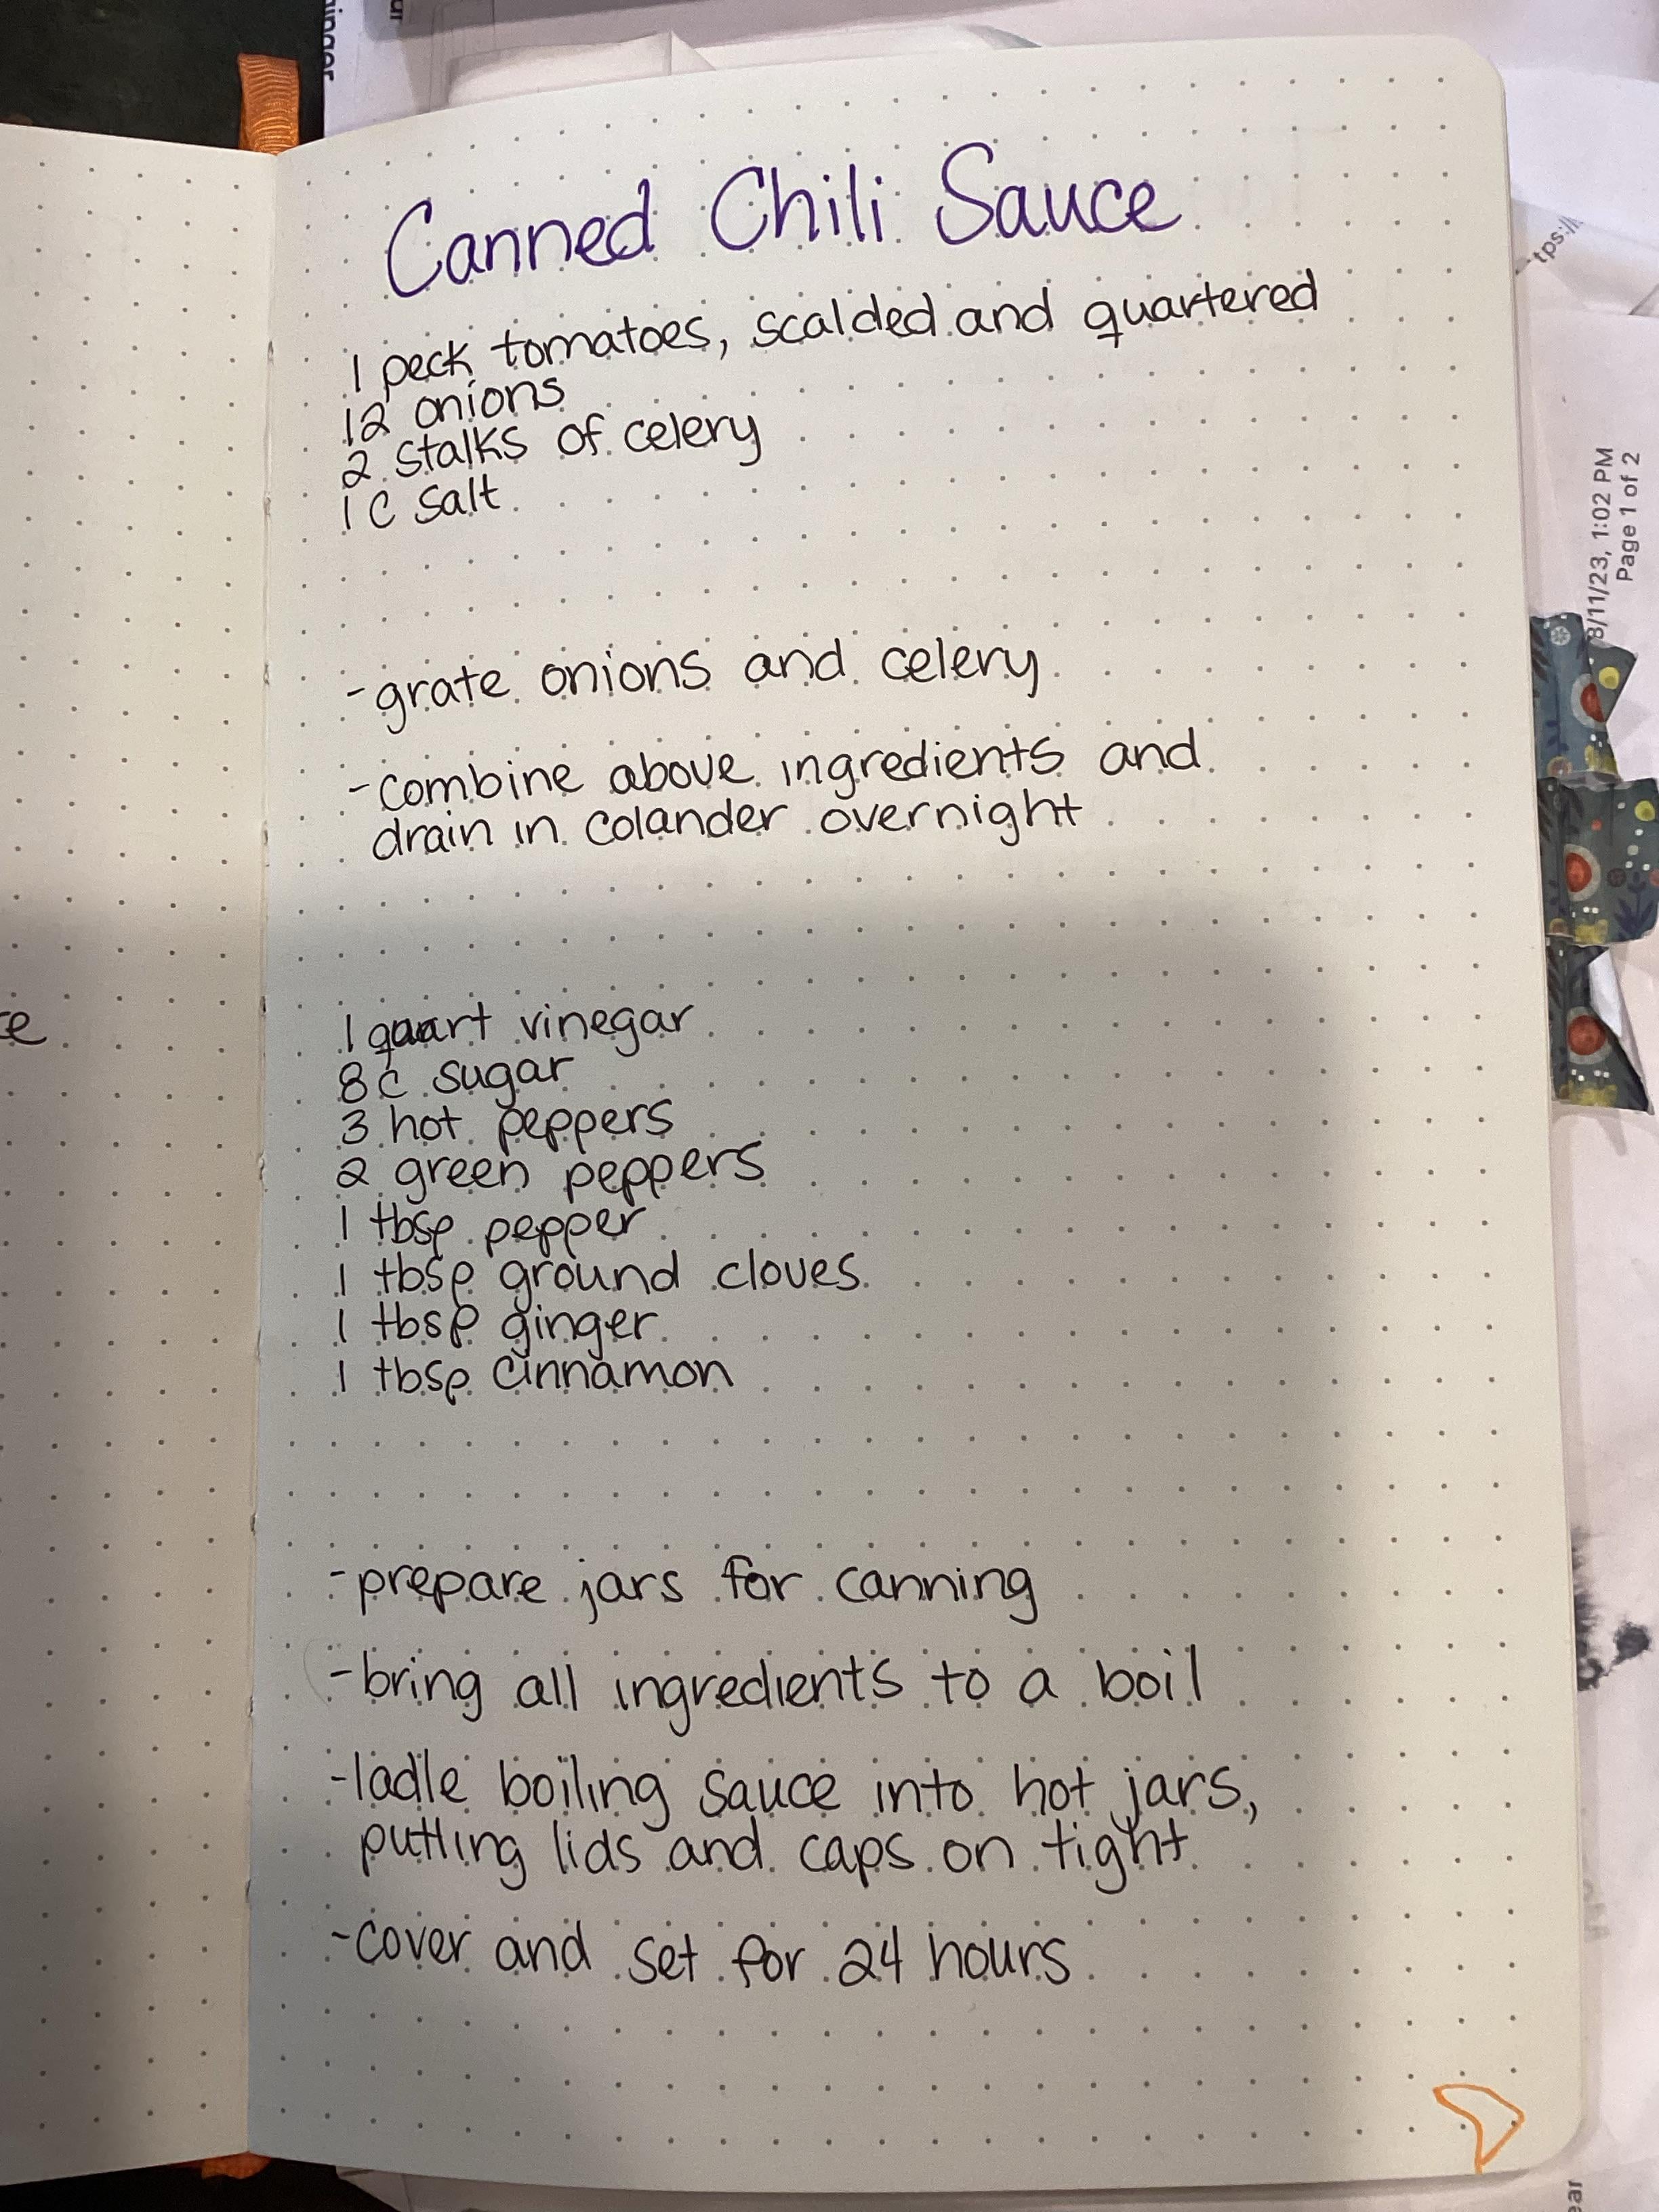 Canned Chili Sauce
1 peck tomatoes, scalded and quartered
12 onions
2 stalks of celery
1 C salt
- grate onions and celery
- combine above ingredients and
drain in colander overnight
1 quart vinegar
8 c sugar
3 hot peppers
2 green peppers
1 tbsp pepper
1 tbsp ground cloves
1 tbsp ginger
1 tbsp cinnamon
- prepare jars for canning
- bring all ingredients to a boil
- ladle boiling sauce into hot jars,
putting lids and caps on tight
- cover and set for 24 hours
tps://
8/11/23, 1:02 PM
Page 1 of 2